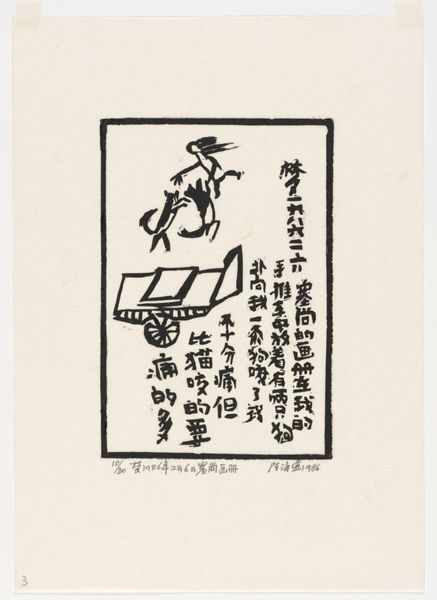 梦一九八六二六
塞尚的画册在我的
手推车中放着有两只狗
扑向我一条狗咬了我
不十分痛但
比猫咬的要
痛的多
10/30 梦1986年2月6日塞尚画册 陈海燕1986
3